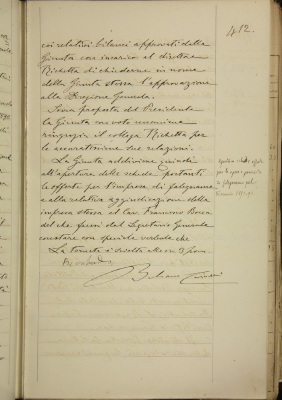 412.
coi relativi bilanci approvati dalla
Giunta con incarico al direttore
Richetta di chiederne in nome
della Giunta stessa l'approvazione
alla Direzione Generale.
Sovra proposta del Presidente
la Giunta con voto unanime
ringrazia il collega Richetta per
le accuratissime sue relazioni.
La Giunta addiviene quindi
all'apertura delle schede portanti
le offerte per l'impresa di falegname
e alla relativa aggiudicazione della
impresa stessa al Sr. Francesco
del che fassi dal Segretario Generale
constare con speciale verbale che
La seduta è sciolta alle ore
Apertura schede offerte
per le opere
di falegname pel